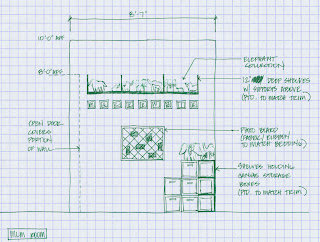 8'-7"
10'-0" AFF
ELEPHANT
COLLECTION
8'-0" AFF
12" DEEP SHELVES
W/ SUPPORTS ABOVE
(PTD. TO MATCH TRIM)
OPEN DOOR
COVERS
PORTION
OF WALL
PHOTO BOARD
(FABRIC/RIBBON
TO MATCH BEDDING)
SHELVES HOLDING
CANVAS STORAGE
BOXES
(PTD. TO MATCH TRIM)
MUM ROOM